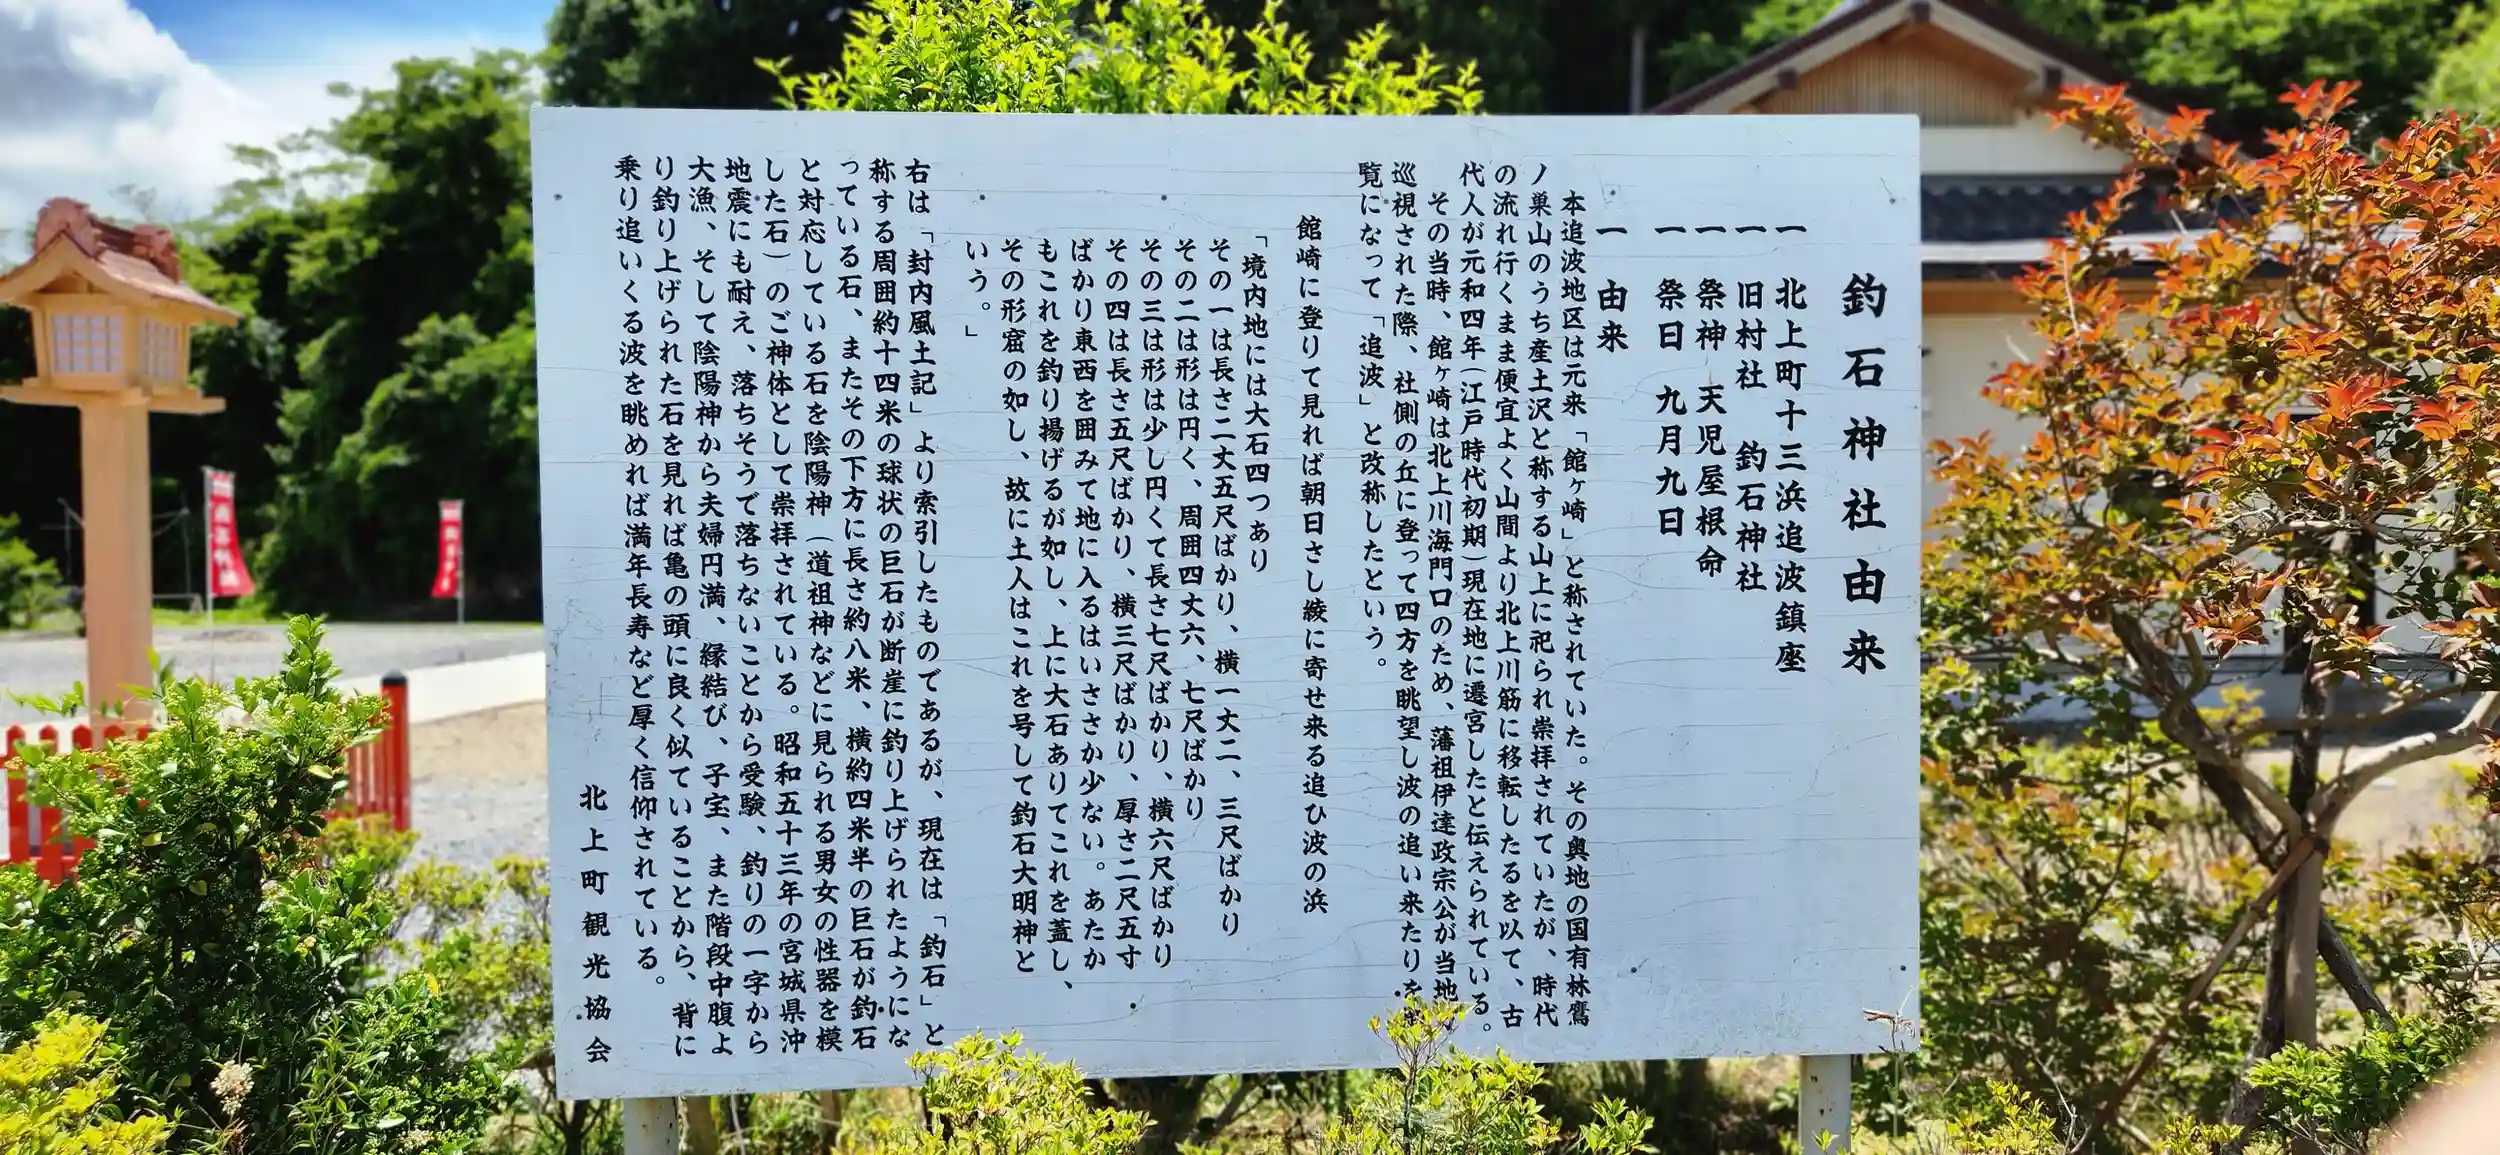 釣石神社由来
一 北上町十三浜追波鎮座
一 旧村社 釣石神社
一 祭神 天児屋根命
一 祭日 九月九日
一 由来
本追波地区は元来「館ヶ崎」と称されていた。その奥地の国有林鷹
ノ巣山のうち産土沢と称する山上に祀られ崇拝されていたが、時代
の流れ行くまま便宜よく山間より北上川筋に移転したるを以て、古
代人が元和四年(江戸時代初期)現在地に遷宮したと伝えられている。
その当時、館ヶ崎は北上川海門口のため、藩祖伊達政宗公が当地
巡視された際、社側の丘に登って四方を眺望し波の追い来たりを
覧になって「追波」と改称したという。
館崎に登りて見れば朝日さし綾に寄せ来る追ひ波の浜
「境内地には大石四つあり
その一は長さ二丈五尺ばかり、横一丈二、三尺ばかり
その二は形は円く、周囲四丈六、七尺ばかり
その三は形は少し円くて長さ七尺ばかり、横六尺ばかり
その四は長さ五尺ばかり、横三尺ばかり、厚さ二尺五寸
ばかり東西を囲みて地に入るはいささか少ない。あたか
もこれを釣り揚げるが如し、上に大石ありてこれを蓋し、
その形窟の如し、故に土人はこれを号して釣石大明神と
いう。」
右は「封内風土記」より索引したものであるが、現在は「釣石」と
称する周囲約十四米の球状の巨石が断崖に釣り上げられたようにな
っている石、またその下方に長さ約八米、横約四米半の巨石が釣石
と対応している石を陰陽神(道祖神などに見られる男女の性器を模
した石)のご神体として崇拝されている。昭和五十三年の宮城県沖
地震にも耐え、落ちそうで落ちないことから受験、釣りの一字から
大漁、そして陰陽神から夫婦円満、縁結び、子宝、また階段中腹よ
り釣り上げられた石を見れば亀の頭に良く似ていることから、背に
乗り追いくる波を眺めれば満年長寿など厚く信仰されている。
北上町観光協会